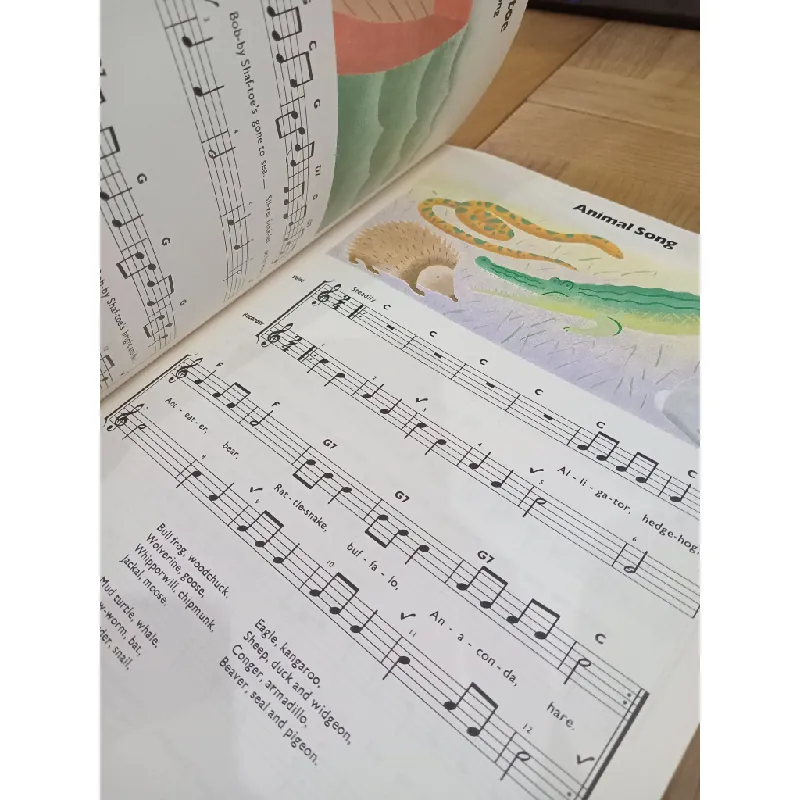 Bob-by Shaf-toe's gone to sea,
C
G
G
G
Animal Song
Voice
Steadily
C C C C C C
Al - li - ga - tor, hedge-hog,
F F G7 G7 G7 C
Ant - eat - er, bear, Rat - tle-snake, buf - fa - lo, An - a - con - da, hare.
Bull frog, woodchuck,
Wolverine, goose,
Whipporwill, chipmunk,
Jackal, moose.
Mud turtle, whale,
bat,
snail.
Eagle, kangaroo,
Sheep, duck and widgeon,
Conger, armadillo,
Beaver, seal and pigeon.